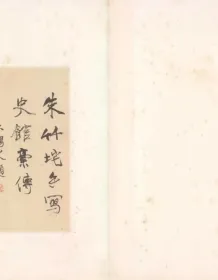 朱竹垞手寫
史館稾傳